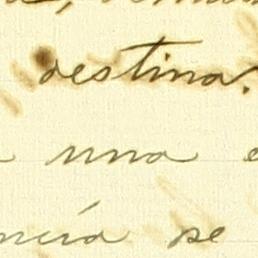 destina.
una
ncia se